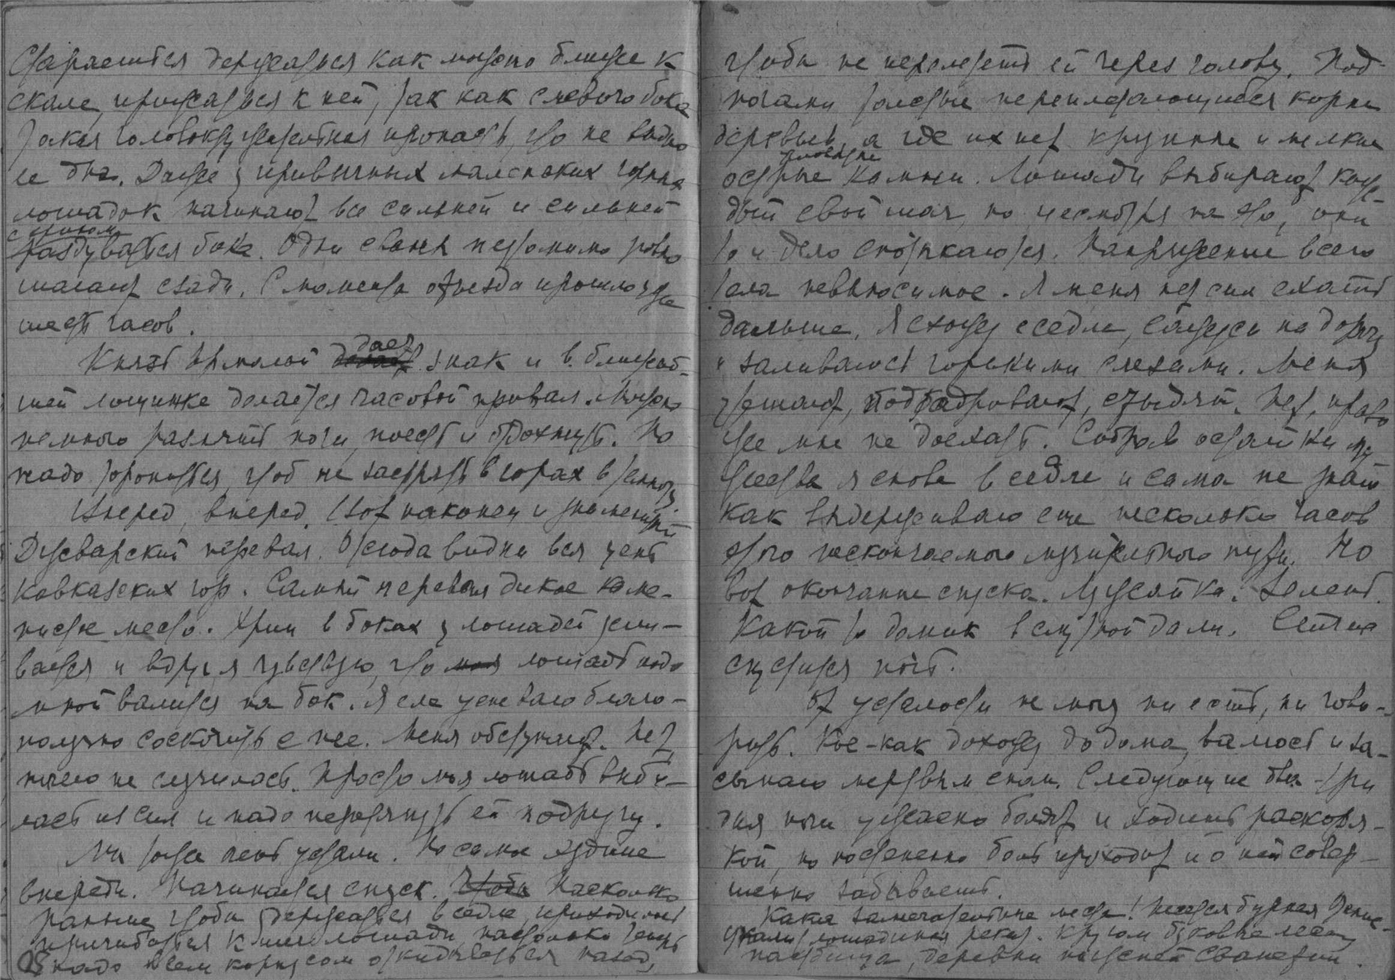 Стараешься держаться как можно ближе к
скале, прижаться к ней, так как с левого бока
такая головокружительная пропасть, что не видно
ее дна. Даже у привычных маленьких горных
лошадок начинают все сильней и сильней
с хрипом
раздуваться бока. Одни сваны неутомимо ровно
шагают сзади. С момента отъезда прошло уже
шесть часов.
Князь Ярмолой дает знак и в ближай-
шей лощинке делается часовой привал. Можно
немного размять ноги, поесть и отдохнуть. Но
надо торопиться, чтоб не застрять в горах в темноту.
Вперед, вперед. Вот наконец и знаменитый
Дусварский перевал. Отсюда видна вся цепь
Кавказских гор. Самый перевал дикое каме-
нистое место. Хрип в боках у лошадей уси-
вается и вдруг я чувствую, что моя лошадь подо
мной валится на бок. Я еле успеваю благо-
получно соскочить с нее. Меня обступают. Нет,
ничего не случилось. Просто моя лошадь выби-
лась из сил и надо перетянуть ей подпругу.
Мы тоже очень устали. Но самое худшее
впереди. Начинается спуск. Чтобы Насколько
раньше чтобы держаться в седле, приходилось
пригибаться к шее лошади, настолько теперь
надо всем корпусом откидываться назад,
чтобы не перелететь ей через голову. Под
ногами толстые переплетающиеся корни
деревьев, а где их нет крупные и мелкие
острые камни. Лошади выбирают каж-
дый свой шаг, но несмотря на это, они
то и дело спотыкаются. Напряжение всего
тела невыносимое. У меня нет сил ехать
дальше. Я схожу с седла, сажусь на дорогу
и заливаюсь горькими слезами. Меня
утешают, подбадривают, стыдят. Нет, право
же мне не доехать. Собрав остатки му-
жества я снова в седле и сама не знаю
как выдерживаю еще несколько часов
этого нескончаемого мучительного пути. Но
вот окончание спуска. Лужайка. Зелень.
Какой то домик в смутной дали. Сейчас
спустится ночь.
От усталости не могу ни есть, ни гово-
рить. Кое-как дохожу до дома, валюсь и за-
сыпаю мертвым сном. Следующие два-три
дня ноги ужасно болят и ходишь раскоря-
кой, но постепенно боль проходит и о ней совер-
шенно забываешь.
Какие замечательные места! Несется бурная
река. Кругом буковые леса,
пастбища, деревни Сванетии.